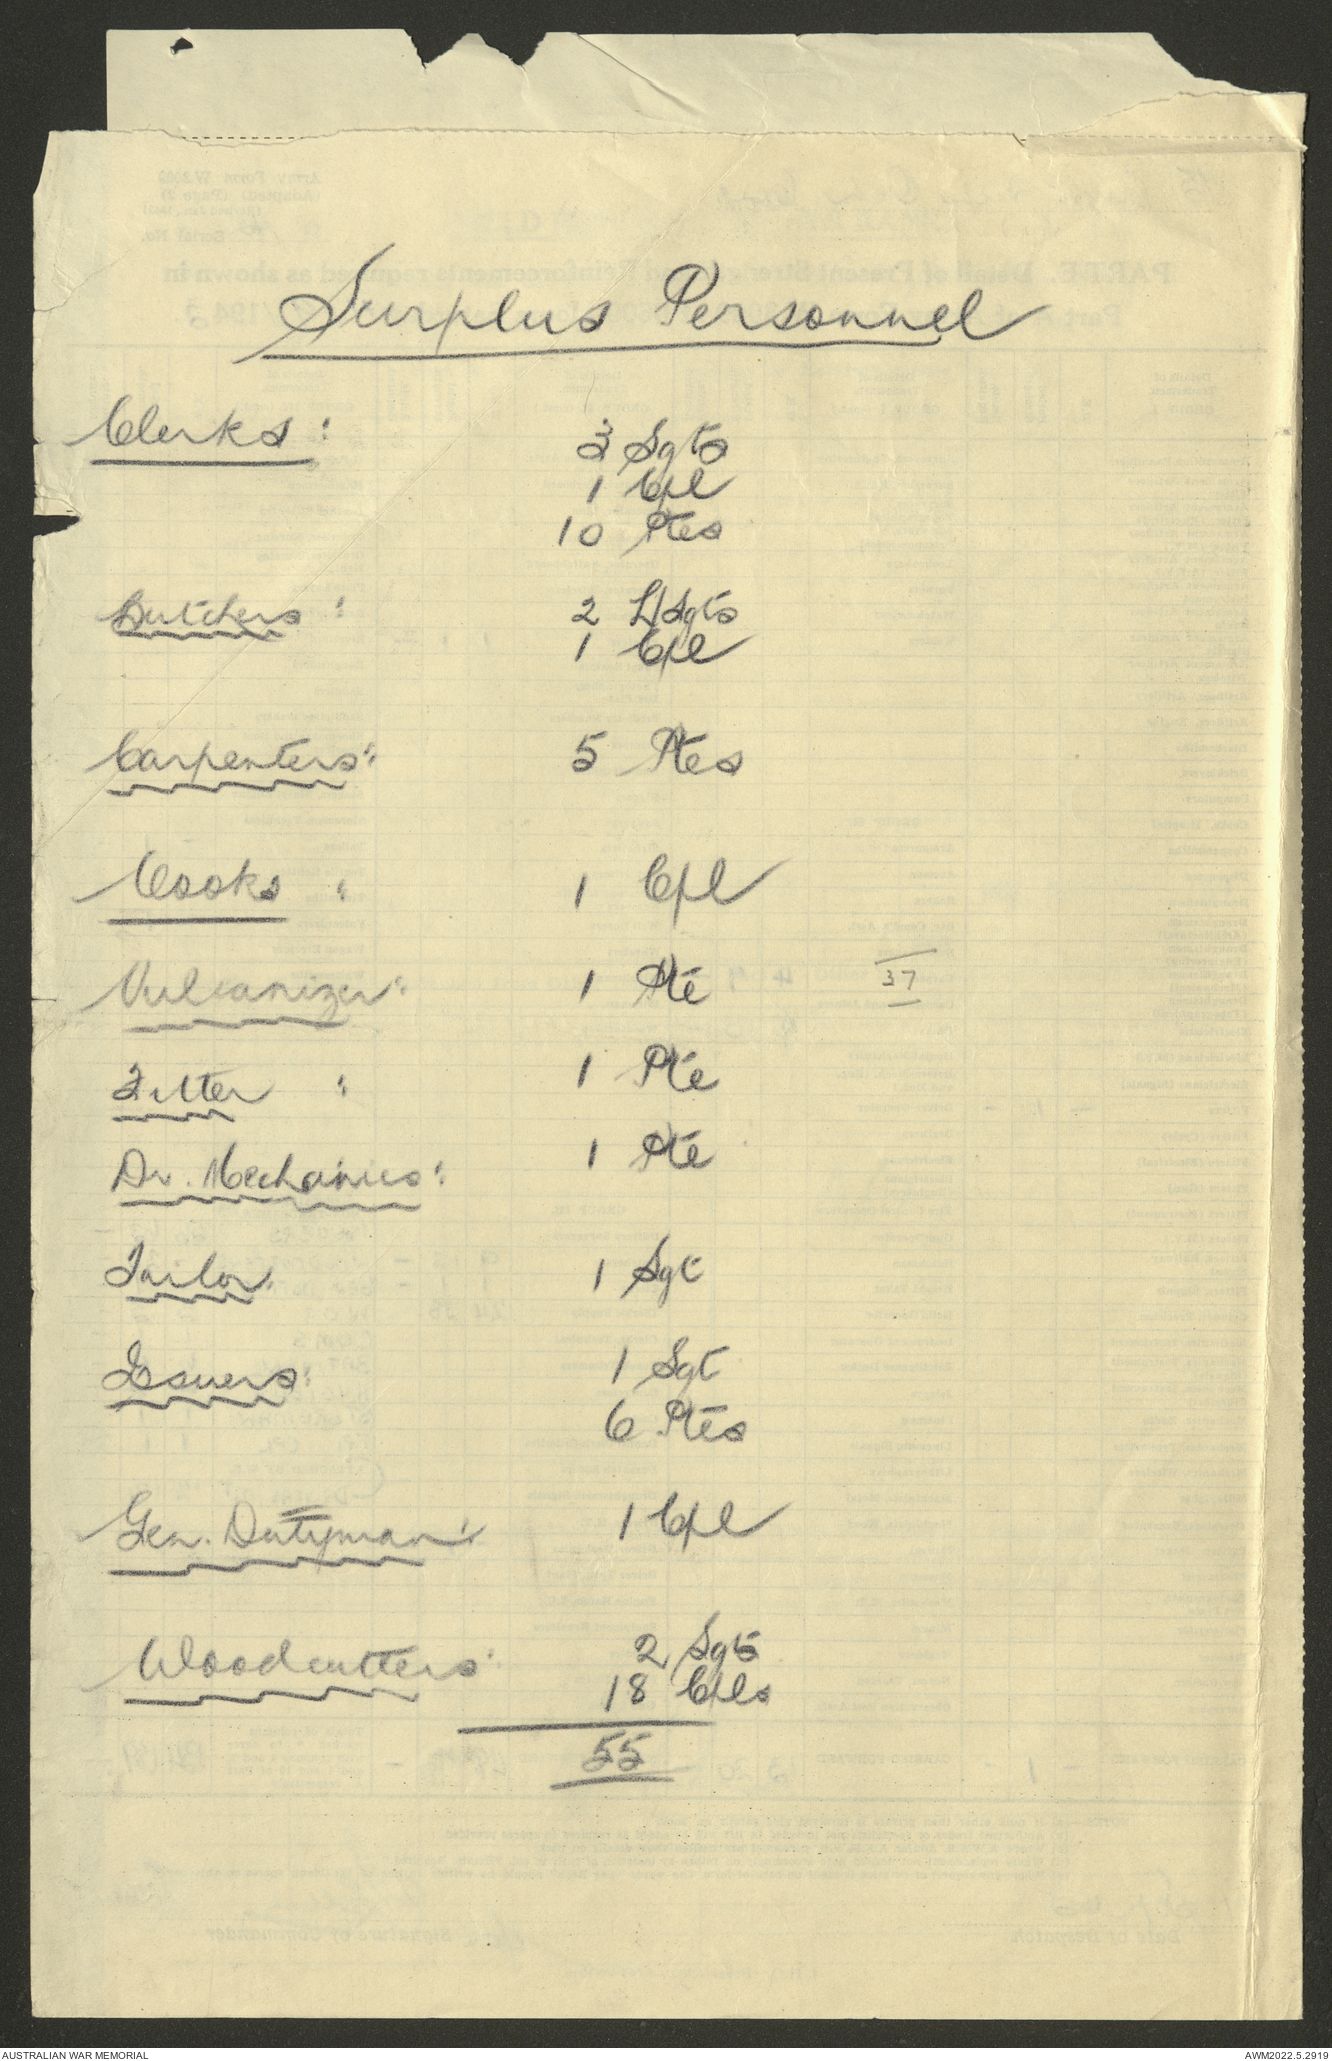 Surplus Personnel
Clerks: 3 Sgts
1 Cpl
10 Ptes
Butchers: 2 L/Sgts
1 Cpl
Carpenters: 5 Ptes
Cooks: 1 Cpl
Vulcanizer: 1 Pte 37
Fitter: 1 Pte
Dr. Mechanics: 1 Pte
Tailor. 1 Sgt
Issuers: 1 Sgt
6 Ptes
Gen. Dutyman: 1 Cpl
Woodcutters: 2 Sgts
18 Cpls
55
AUSTRALIAN WAR MEMORIAL
AWM2022.5.2919